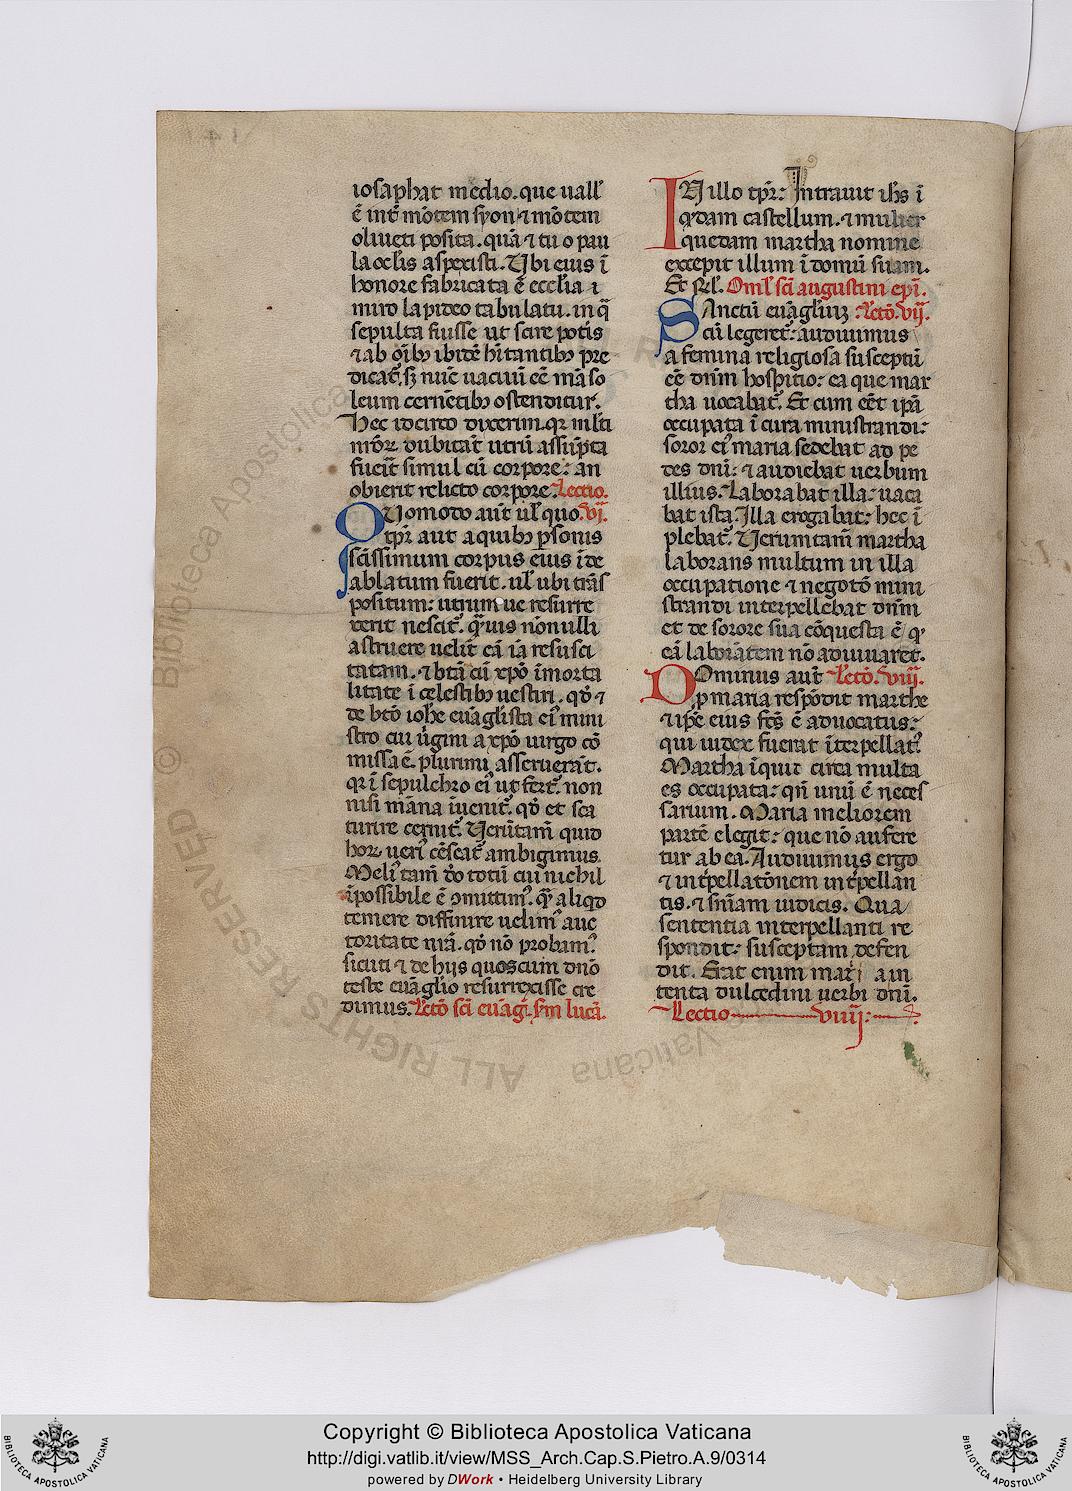 iosaphat medio. que uall'
ē int̄ mōtem syon ⁊ mōtem
oliueti posita. quā ⁊ tu o pau
la oclis aspexisti. Vbi eius ī
honore fabricata ē eccl'ia ī
miro lapideo tabulatu. in q̄
sepulta fuisse ut scire potis
⁊ ab oīb; ibidē hītantib; pre
dicat̄. s; nūc uacuū eē mā so
leum cernētib; ostenditur.
Hec idcirco dixerim. qr ml'ti
nr̄or̄ dubitāt utrū assūpta
fuerit simul cū corpore: an
obierit relicto corpore. Lectio.
Quomodo aut̄ ul' quo .vi.
tp̄r aut a quib; p̄sonis
scīssimum corpus eius īde
ablatum fuerit. ul' ubi trās
positum: utrum ue resurre
xerit nescit̄. q̄uis nōnulli
astruere uelīt eā iā resusci
tatam. ⁊ btā cū xp̄o īmorta
litate ī celestib; uestiri. qđ ⁊
de btō ioh̄e euāglista eī mini
stro cui ūgini a xp̄o uirgo cō
missa ē. plurimi asseruerāt.
qr ī sepulchro eī ut fert̄. non
nisi māna īuenit̄. qđ et sca
turire cernit̄. Verūtam̄ quid
hor̄ ueri' cēseat̄ ambigimus.
Meli' tam̄ đo totū cui nichil
īpossibile ē ꝯmittim'. q̄ aliqđ
temere diffinire uelim' auc
toritate nrā. qđ nō probam'.
sicuti ⁊ de hijs quos cum dn̄o
teste euāglio resurrexisse cre
dimus. Lectō scī euāgl̄. sm̄ lucā.
IN illo tp̄r: Intrauit ih̄s ī
q̄dam castellum. ⁊ mulier
quedam martha nomine
excepit illum ī domū suam.
Et rel'. Oml' scī augustini ep̄i.
SAnctū euāgliuz Lectō. vij.
cū legeret̄: audiuimus
a femina religiosa susceptū
eē dn̄m hospitio: ea que mar
tha uocabat̄. Et cum eēt ip̄a
occupata ī cura ministrandi:
soror eī maria sedebat ad pe
des dn̄i: ⁊ audiebat uerbum
illius. Laborabat illa: uaca
bat ista. Illa erogabat: hec ī
plebat̄. Verumtam̄ martha
laborans multum in illa
occupatione ⁊ negotō mini
strandi interpellebat dn̄m
et de sorore sua cōquesta ē q̄
eā laborātem nō adiuuaret.
DOminus aut̄ Lectō. viij.
p maria respōdit marthe
⁊ ip̄e eius fc̄s ē aduocatus:
qui iudex fuerat īterpellat'.
Martha īquit circa multa
es occupata: qn̄ unū ē neces
sarium. Maria meliorem
partē elegit: que nō aufere
tur ab ea. Audiuimus ergo
⁊ int̄pellatōnem int̄pellan
tis. ⁊ sn̄iam iudicis. Qua
sententia interpellanti re
spondit: susceptam defen
dit. Erat enim mari a in
tenta dulcedini uerbi dn̄i.
Lectio viiij:
Copyright © Biblioteca Apostolica Vaticana
http://digi.vatlib.it/view/MSS_Arch.Cap.S.Pietro.A.9/0314
powered by DWork • Heidelberg University Library
BIBLIOTECA APOSTOLICA VATICANA
BIBLIOTECA APOSTOLICA VATICANA
ALL RIGHTS RESERVED © Biblioteca Apostolica Vaticana